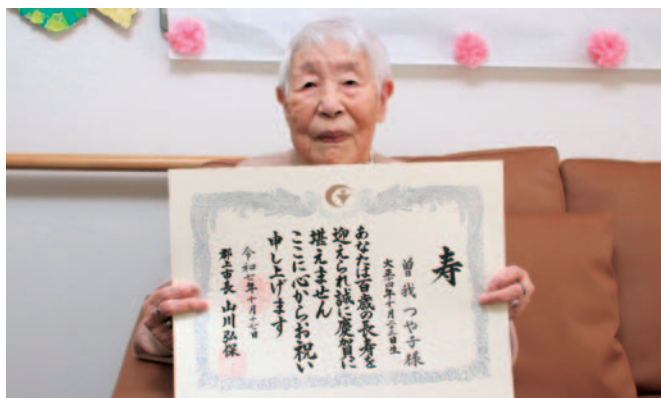 寿
曽我 つや子 様
大正十四年十月二十三日生
あなたは百歳の長寿を
迎えられ誠に慶賀に
堪えません
ここに心からお祝い
申し上げます
令和七年十月二十七日
郡上市長 山川弘保